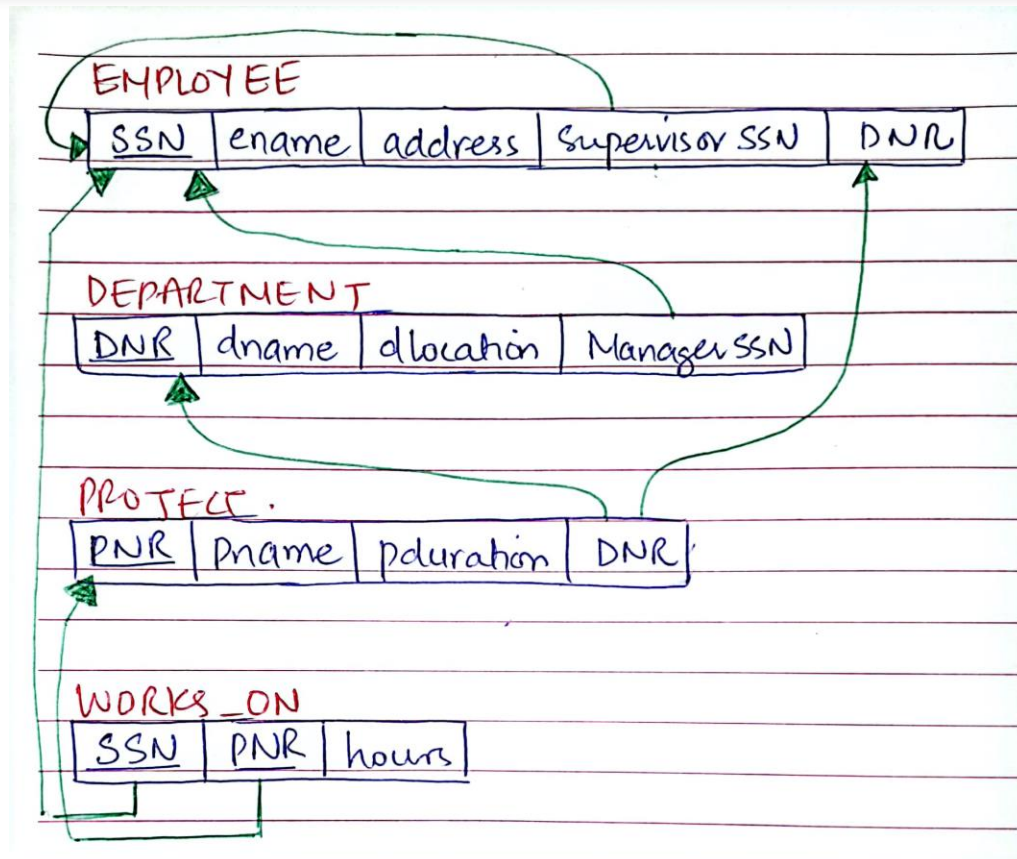 EMPLOYEE
SSN ename address Supervisor SSN DNR
DEPARTMENT
DNR dname dlocation Manager SSN
PROJECT.
PNR Pname Pduration DNR
WORKS_ON
SSN PNR hours